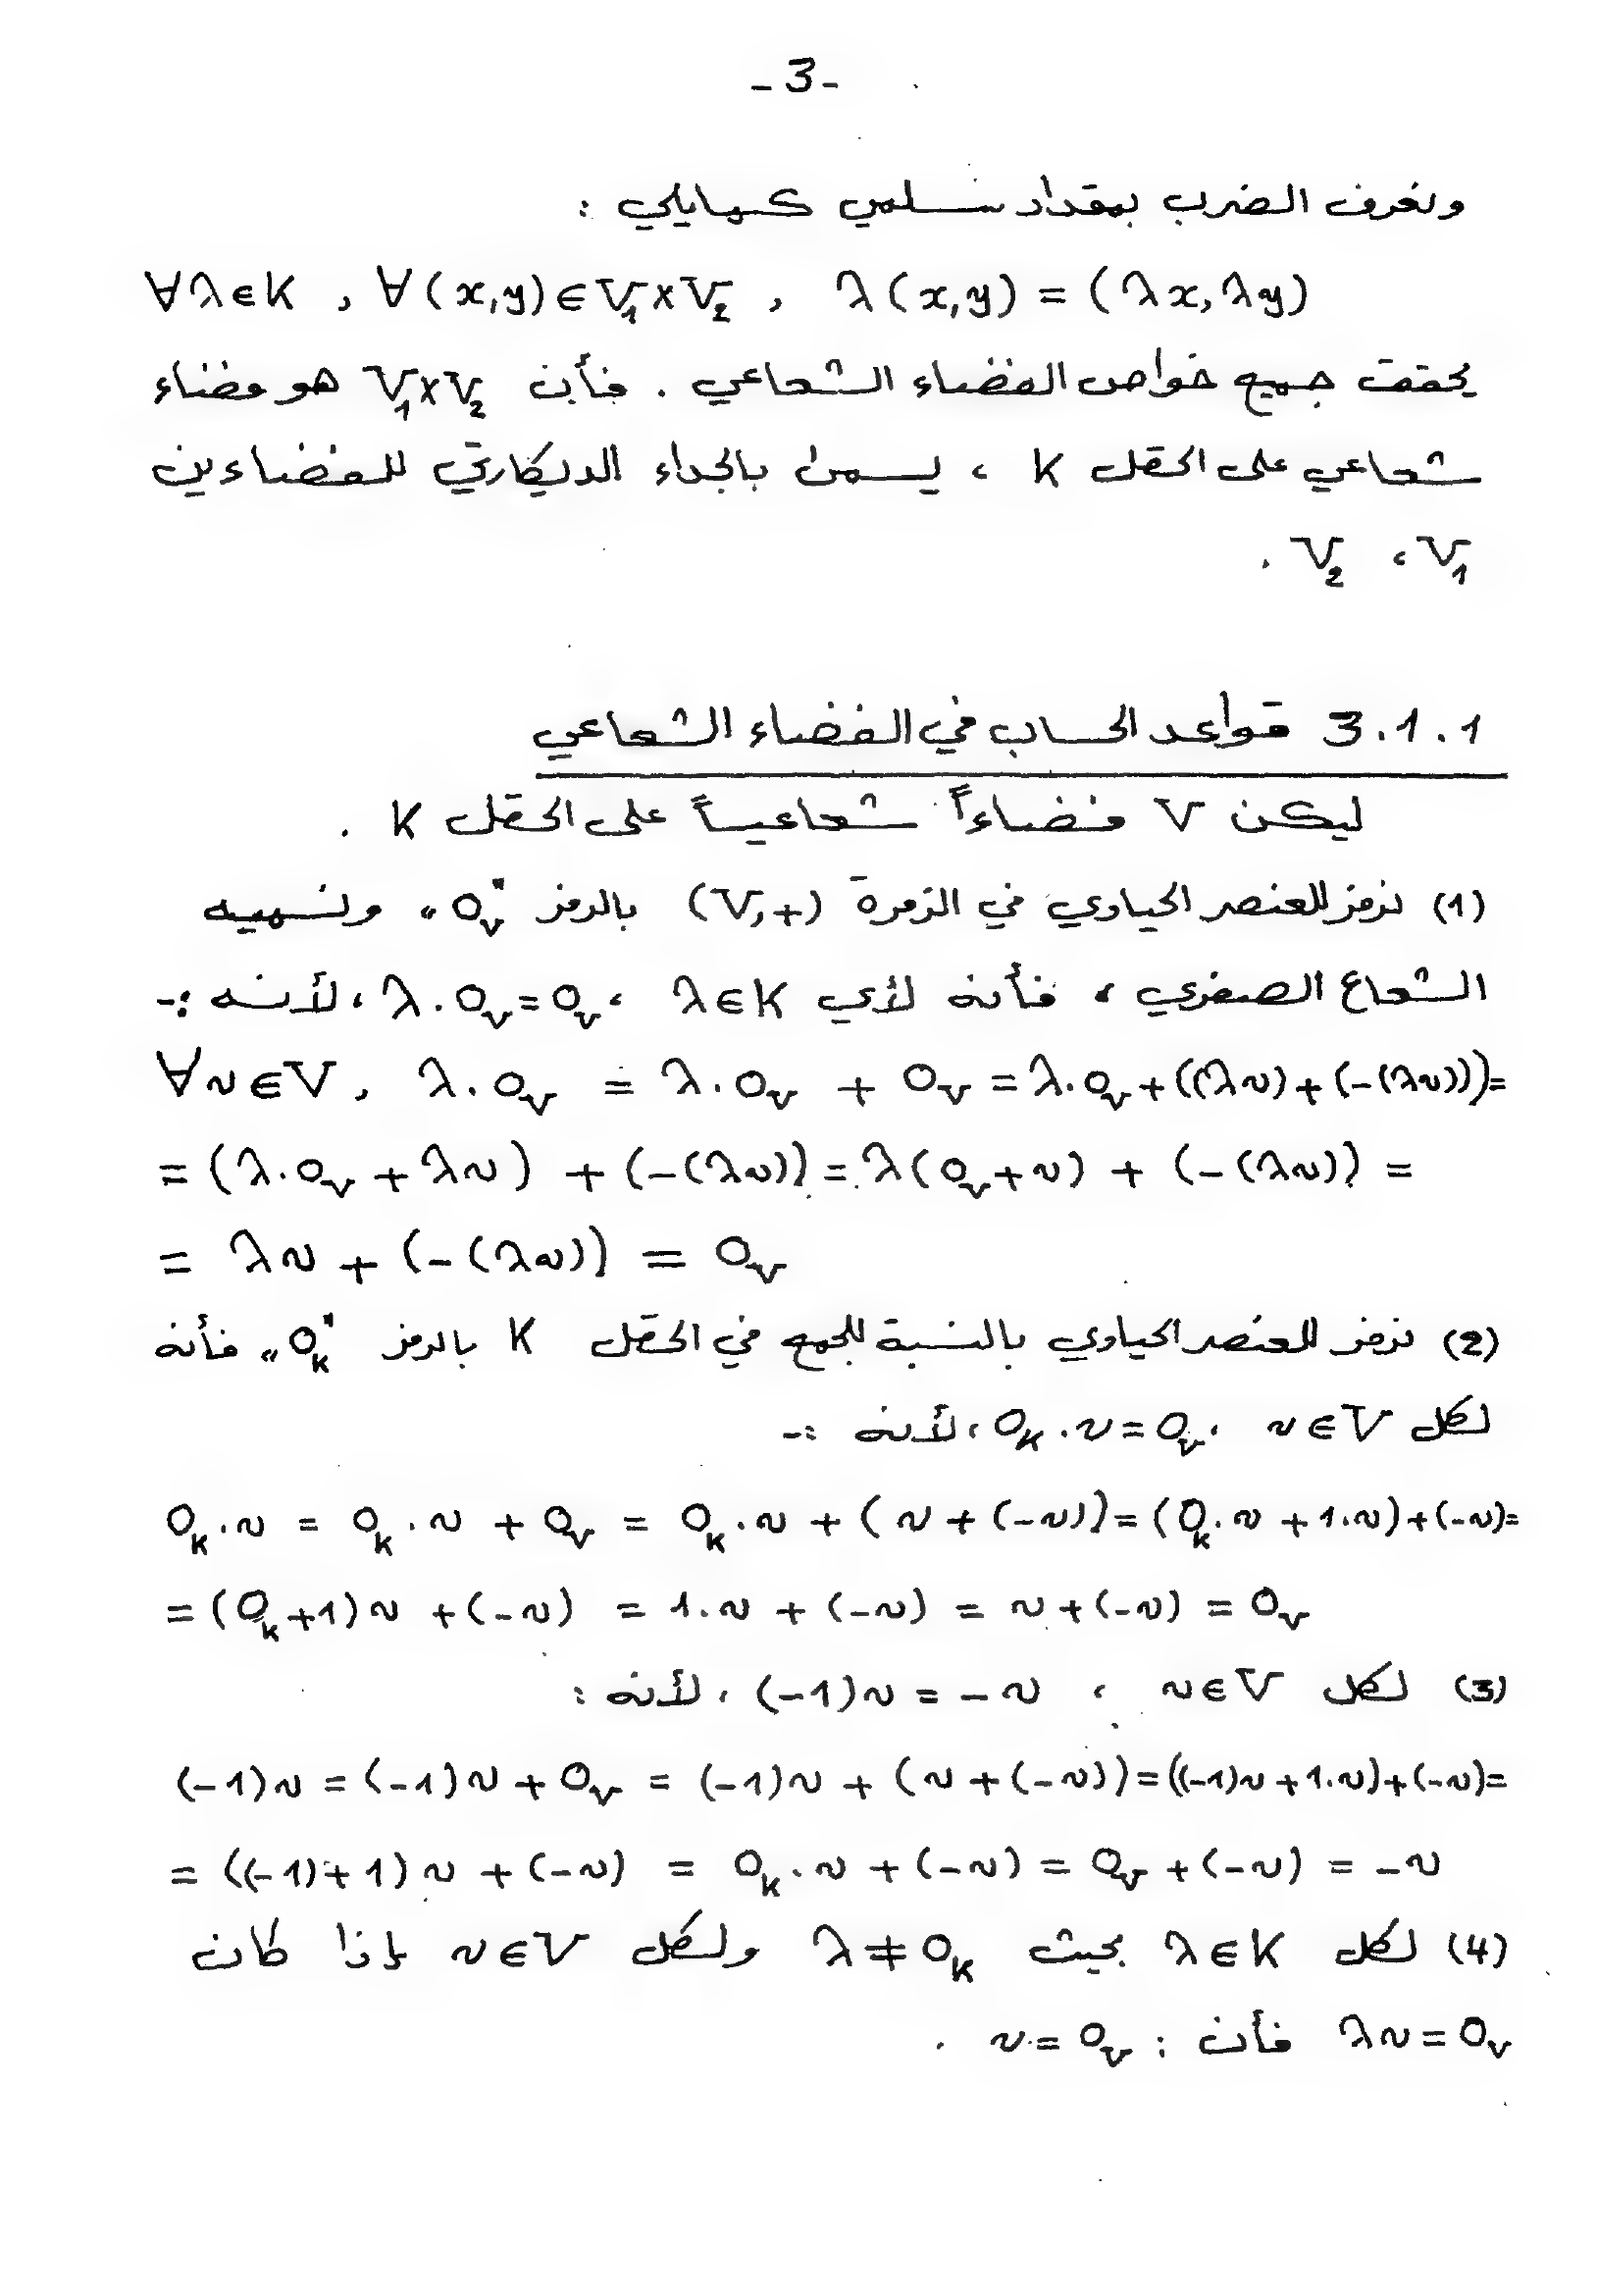 -3-
ونعرف الضرب بمقدار سلمي كمايلي :
∀λ∈K , ∀(x,y)∈V₁×V₂ , λ(x,y) = (λx,λy)
يحقق جميع خواص الفضاء الشعاعي . فأن V₁×V₂ هو فضاء
شعاعي على الحقل K ، يسمى بالجداء الديكارتي للفضاءين
V₁ ، V₂ .
3.1.1 قواعد الحساب في الفضاء الشعاعي
ليكن V فضاءاً شعاعياً على الحقل K .
(1) نرمز للعنصر الحيادي في الزمرة (V,+) بالرمز "0ᵥ" ونسميه
الشعاع الصفري ، فأنه لأي λ∈K ، λ.0ᵥ=0ᵥ ، لأنه :-
∀v∈V , λ.0ᵥ = λ.0ᵥ + 0ᵥ = λ.0ᵥ+((λv)+(-(λv)))=
= (λ.0ᵥ + λv) + (-(λv)) = λ(0ᵥ+v) + (-(λv)) =
= λv + (-(λv)) = 0ᵥ
(2) نرمز للعنصر الحيادي بالنسبة للجمع في الحقل K بالرمز "0ₖ" فأنه
لكل v∈V ، 0ₖ.v=0ᵥ ، لأنه :-
0ₖ.v = 0ₖ.v + 0ᵥ = 0ₖ.v + (v + (-v)) = (0ₖ.v + 1.v)+(-v)=
= (0ₖ+1)v + (-v) = 1.v + (-v) = v+(-v) = 0ᵥ
(3) لكل v∈V ، (-1)v = -v ، لأنه :
(-1)v = (-1)v + 0ᵥ = (-1)v + (v + (-v)) = ((-1)v + 1.v)+(-v)=
= ((-1)+1)v + (-v) = 0ₖ.v + (-v) = 0ᵥ + (-v) = -v
(4) لكل λ∈K بحيث λ≠0ₖ ولكل v∈V إذا كان
λv=0ᵥ فأن : v=0ᵥ .